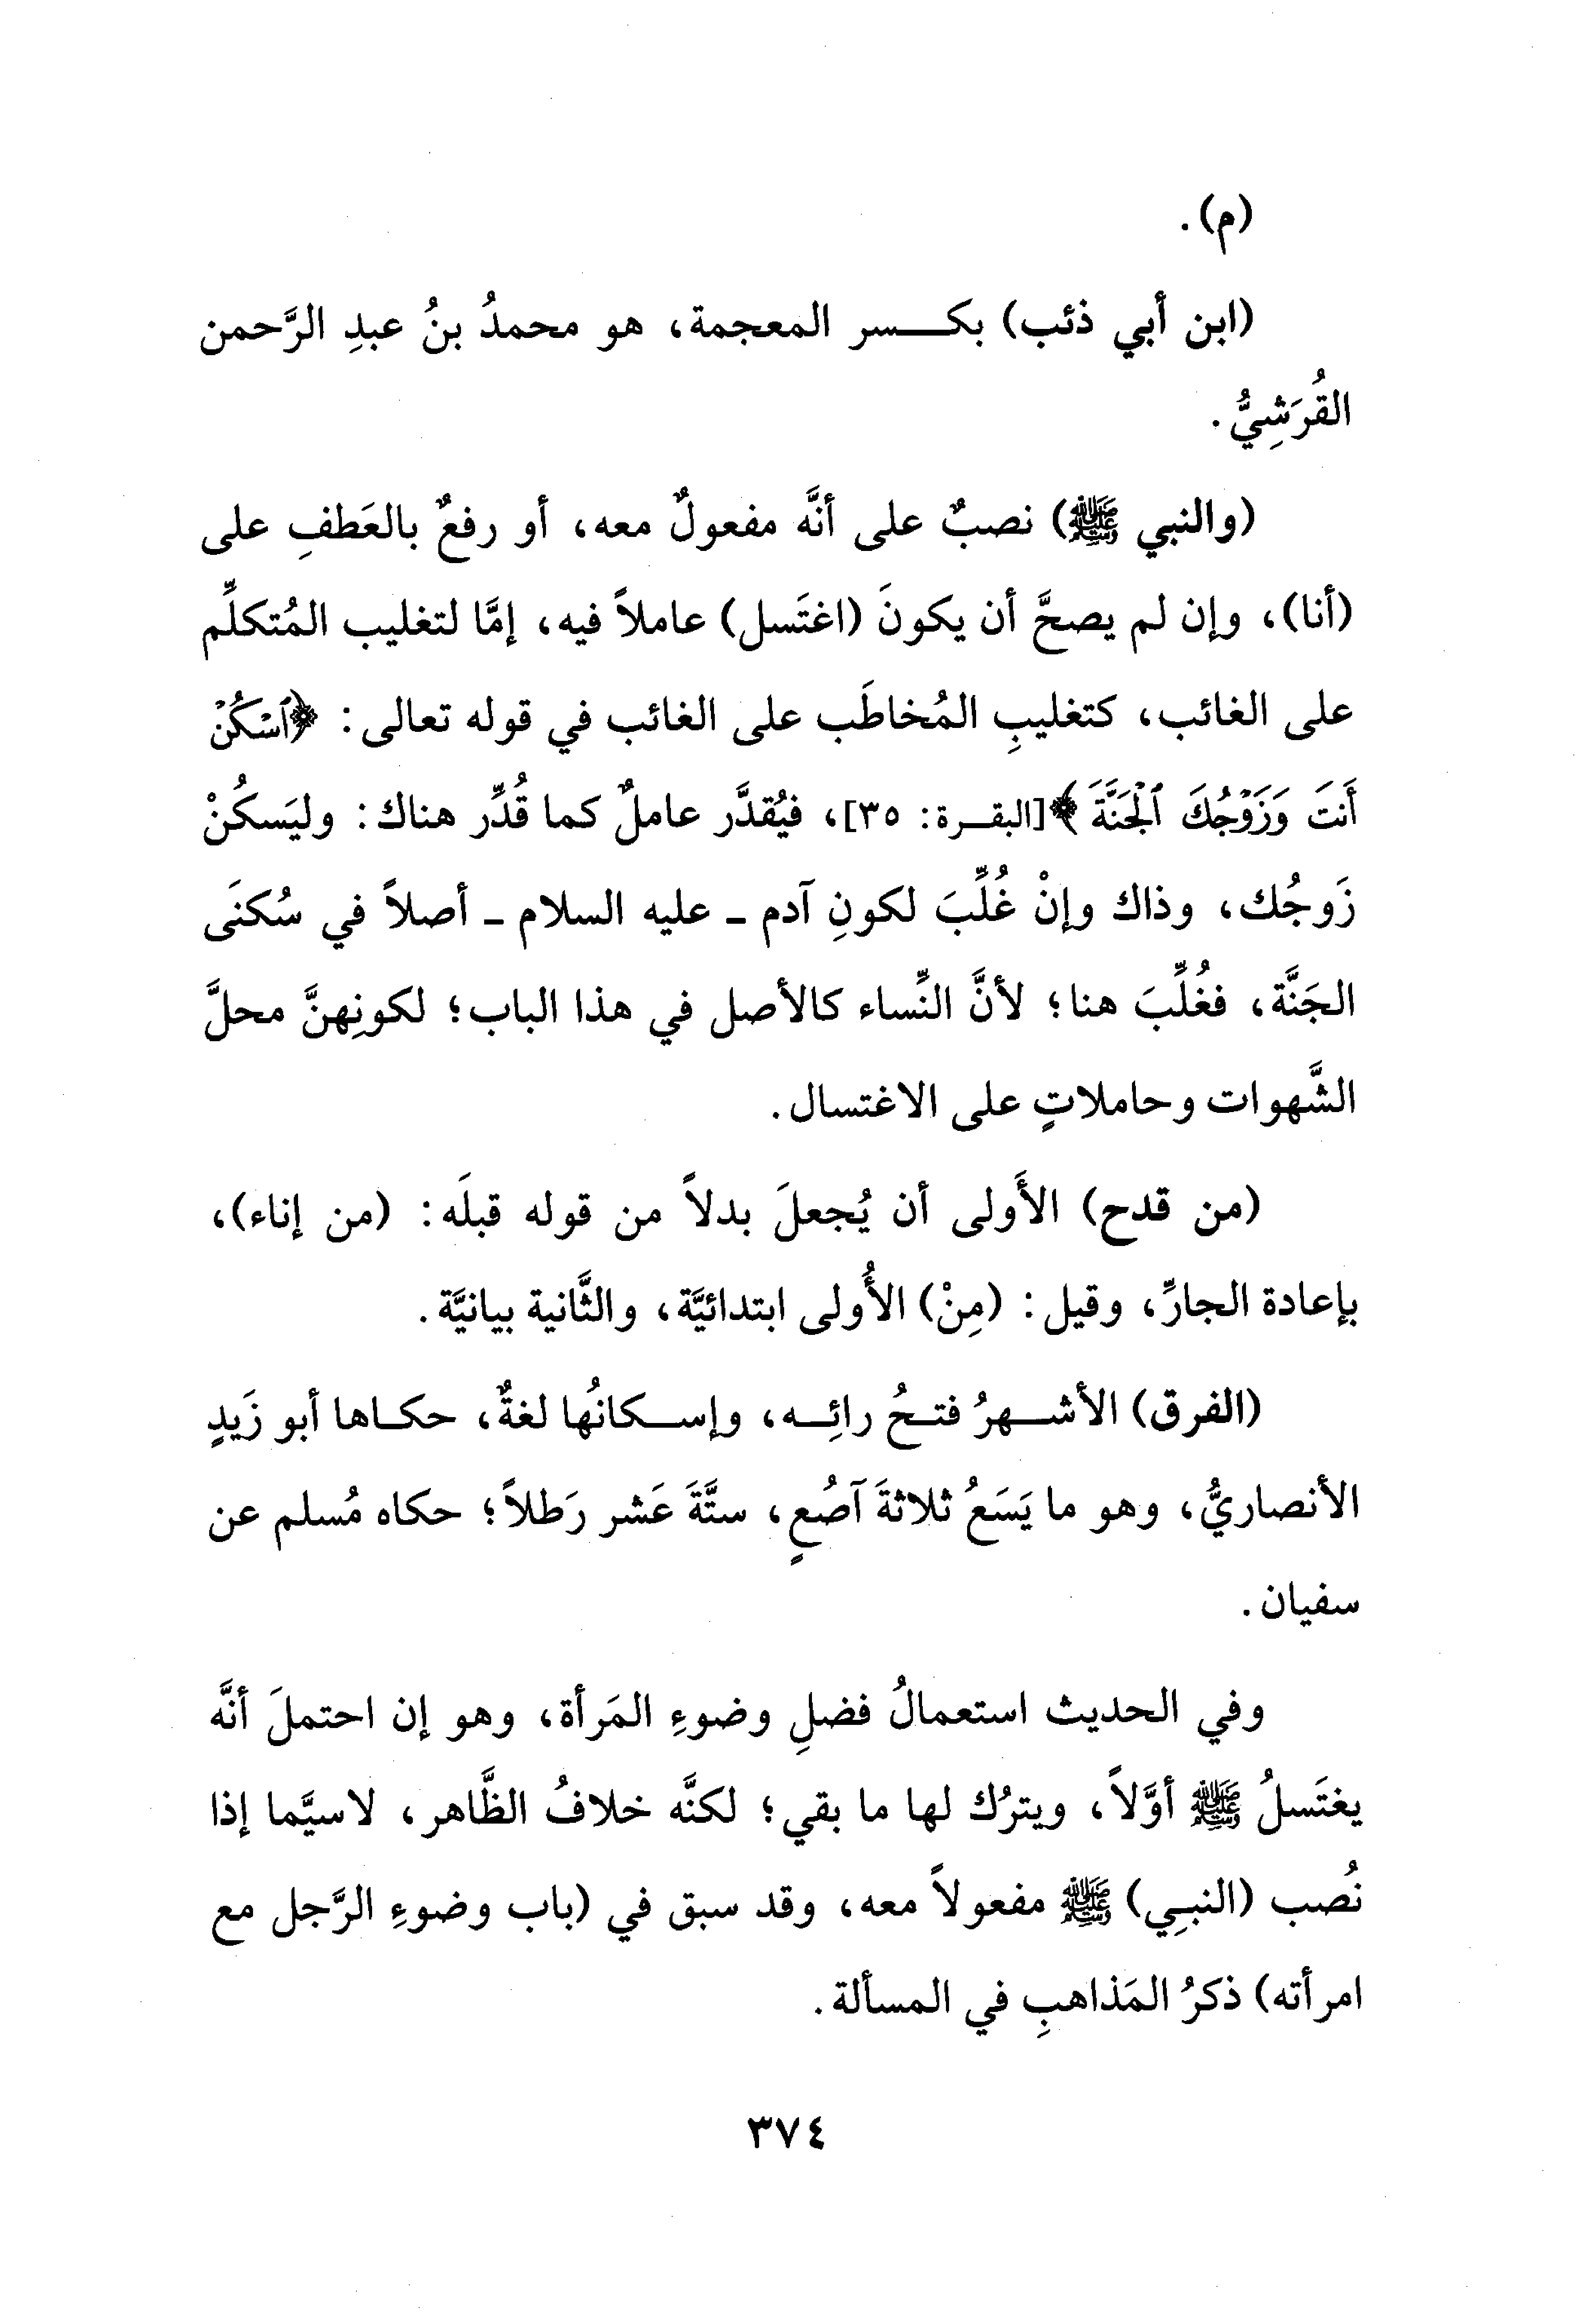 (م).
(ابن أبي ذئب) بكسر المعجمة، هو محمدُ بنُ عبدِ الرَّحمن
القُرَشِيُّ.
(والنبي ﷺ) نصبٌ على أنَّه مفعولٌ معه، أو رفعٌ بالعَطفِ على
(أنا)، وإن لم يصحَّ أن يكونَ (اغتَسل) عاملاً فيه، إمَّا لتغليب المُتكلِّم
على الغائب، كتغليبِ المُخاطَب على الغائب في قوله تعالى: ﴿ٱسْكُنْ
أَنتَ وَزَوْجُكَ ٱلْجَنَّةَ﴾ [البقرة: ٣٥]، فيُقدَّر عاملٌ كما قُدِّر هناك: وليَسكُنْ
زَوجُك، وذاك وإنْ غُلِّبَ لكونِ آدم - عليه السلام - أصلاً في سُكنَى
الجَنَّة، فغُلِّبَ هنا؛ لأنَّ النِّساء كالأصل في هذا الباب؛ لكونِهنَّ محلَّ
الشَّهوات وحاملاتٍ على الاغتسال.
(من قدح) الأَولى أن يُجعلَ بدلاً من قوله قبلَه: (من إناء)،
بإعادة الجارِّ، وقيل: (مِنْ) الأُولى ابتدائيَّة، والثَّانية بيانيَّة.
(الفرق) الأشهرُ فتحُ رائِه، وإسكانُها لغةٌ، حكاها أبو زَيدٍ
الأنصاريُّ، وهو ما يَسَعُ ثلاثةَ آصُعٍ، ستَّةَ عَشر رَطلاً؛ حكاه مُسلم عن
سفيان.
وفي الحديث استعمالُ فضلِ وضوءِ المَرأة، وهو إن احتملَ أنَّه
يغتَسلُ ﷺ أوَّلاً، ويترُك لها ما بقي؛ لكنَّه خلافُ الظَّاهر، لاسيَّما إذا
نُصب (النبِي) ﷺ مفعولاً معه، وقد سبق في (باب وضوءِ الرَّجل مع
امرأته) ذكرُ المَذاهبِ في المسألة.
٣٧٤